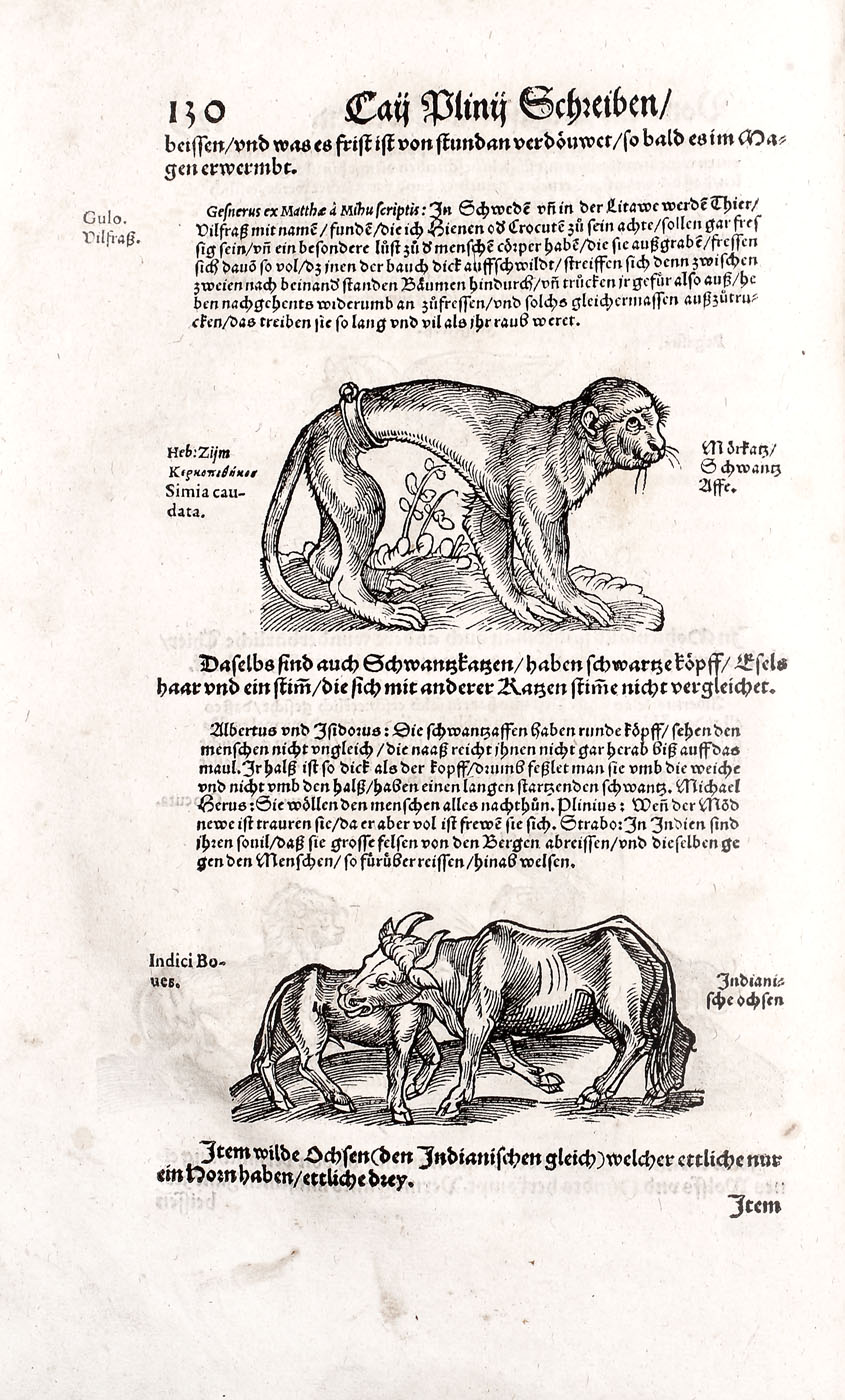 130 Caij Plinij Schreiben/
beissen/vnd was es frist ist von stund an verdöuwet/so bald es im Ma⸗
gen erwermbt.
Gulo.
Vilfraß.
Gesnerus ex Matthæ à Mihu scriptis: In Schwedē vn̄ in der Litawe werdē Thier/
Vilfraß mit namē/funden/die ich Hienen od Crocutē zů sein achte/sollen gar fres
sig sein/vn̄ ein besondere lüst zů d menschē cörper habē/die sie außgrabē/fressen
sich dauō so vol/dz jnen der bauch dick auffschwildt/streiffen sich denn zwischen
zweien nach beinand standen Bäumen hindurch/vn̄ trücken jr gefür also auß/he
ben nachgehents widerumb an zůfressen/vnd solchs gleichermassen außzůtru⸗
cken/das treiben sie so lang vnd vil als jhr raub weret.
Heb: Zijm
Simia cau-
data.
Mörkatz/
Schwantz
Affe.
Daselbs sind auch Schwantzkatzen/haben schwartze köpff/ Esels
haar vnd ein stim̄/die sich mit anderer Katzen stim̄e nicht vergleichet.
Albertus vnd Isidorus: Die schwantzaffen haben runde köpff/ sehen den
menschen nicht vngleich/die naaß reicht jhnen nicht gar herab biß auff das
maul. Ir halß ist so dick als der kopff/drumb feßlet man sie vmb die weiche
vnd nicht vmb den halß/haben einen langen startzenden schwantz. Michael
Herus: Sie wöllen den menschen alles nachthůn. Plinius: Wen̄ der Mōd
newe ist trauren sie/da er aber vol ist frewē sie sich. Strabo: In Indien sind
jhren souil/daß sie grosse felsen von den Bergen abreissen/vnd dieselben ge
gen den Menschen/ so fürüber reissen/hinab welsen.
Indici Bo-
ues.
Indiani⸗
sche ochsen
Item wilde Ochsen (den Indianischen gleich) welcher ettliche nur
ein Horn haben/ettliche drey.
Item